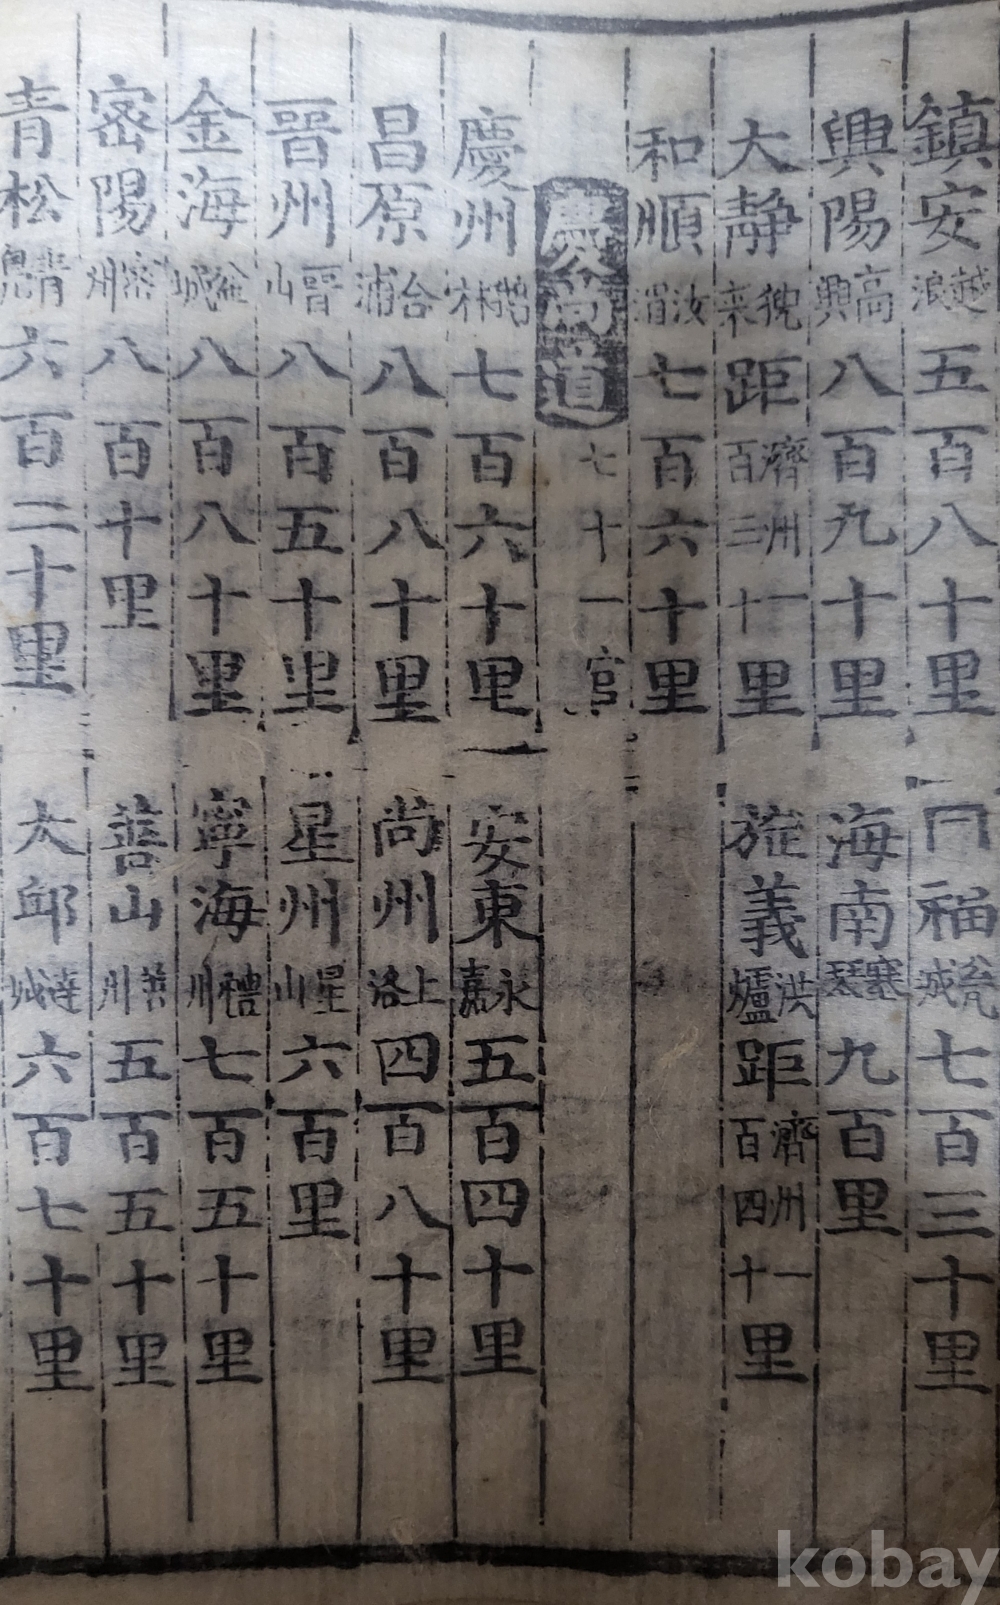 鎮安 越浪 五百八十里 同福 瓮城 七百三十里
興陽 高興 八百九十里 海南 塞琴 九百里
大靜 猊來 距濟州一百三十里 旌義 洪爐 距濟州一百四十里
和順 汝湄 七百六十里
慶尚道 七十一官
慶州 雞林 七百六十里 安東 永嘉 五百四十里
昌原 合浦 八百八十里 尚州 上洛 四百八十里
晉州 晉山 八百五十里 星州 星山 六百里
金海 金城 八百八十里 寧海 禮州 七百五十里
密陽 密州 八百十里 善山 善州 五百五十里
青松 青鳧 六百二十里 大邱 達城 六百七十里
kobay